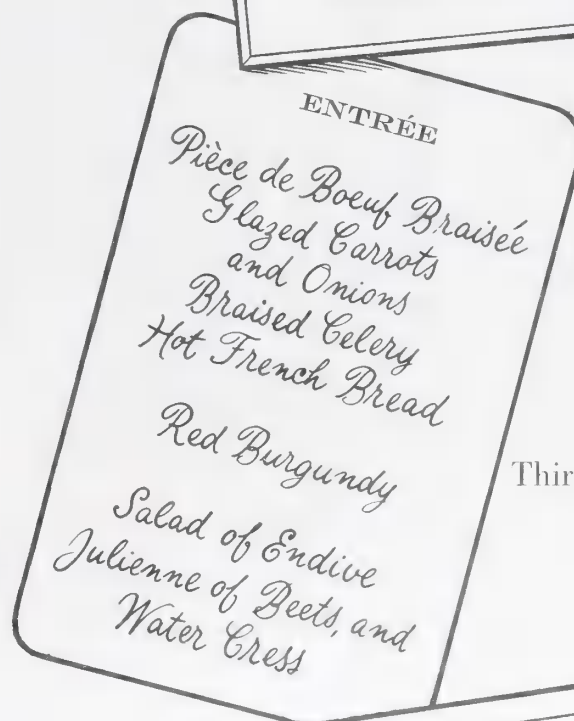 ENTRÉE
Pièce de Boeuf Braisée
Glazed Carrots
and Onions
Braised Celery
Hot French Bread
Red Burgundy
Salad of Endive
Julienne of Beets, and
Water Cress
Thir